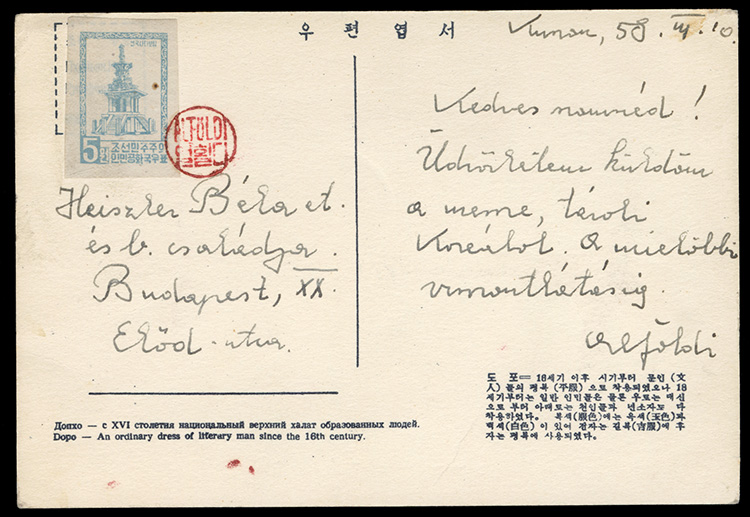 우편엽서
5 전
조선민주주의
인민공화국우표
ALFÖLDI
Kunsan, 58.
Kedves
Üdvözletem küldöm
a messze, távoli
Koreából. A mielőbbi
viszontlátásig.
Alföldi
Heiszler Béla et.
és b. családja.
Budapest, XX.
Előd-utca.
도 포= 16세기 이후 시기부터 문인 (文
人) 들의 평복 (平服) 으로 착용되였으나 18
세기부터는 일반 인민들은 물론 우로는 대신
으로 부터 아래로는 천인들과 년소자도 다
착용하였다. 옥색(玉色)과
백색(白色) 이 있어 전자는 길복(吉服)에 후
자는 평복에 사용되였다.
Допхо — с XVI столетия национальный верхний халат образованных людей.
Dopo — An ordinary dress of literary man since the 16th century.